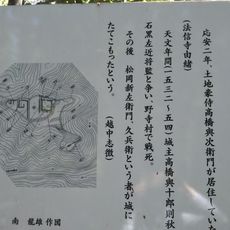 応安二年、土地豪侍高橋與次衛門が居住してい
(法信寺由緒)
天文年間(一五三二〜五四)城主高橋與十郎則秋
石黒左近将監と争い、野寺村で戦死。
その後、松岡新左衛門、久兵衛という者が城に
たてこもったという。
(越中志徴)
南 龍雄 作図